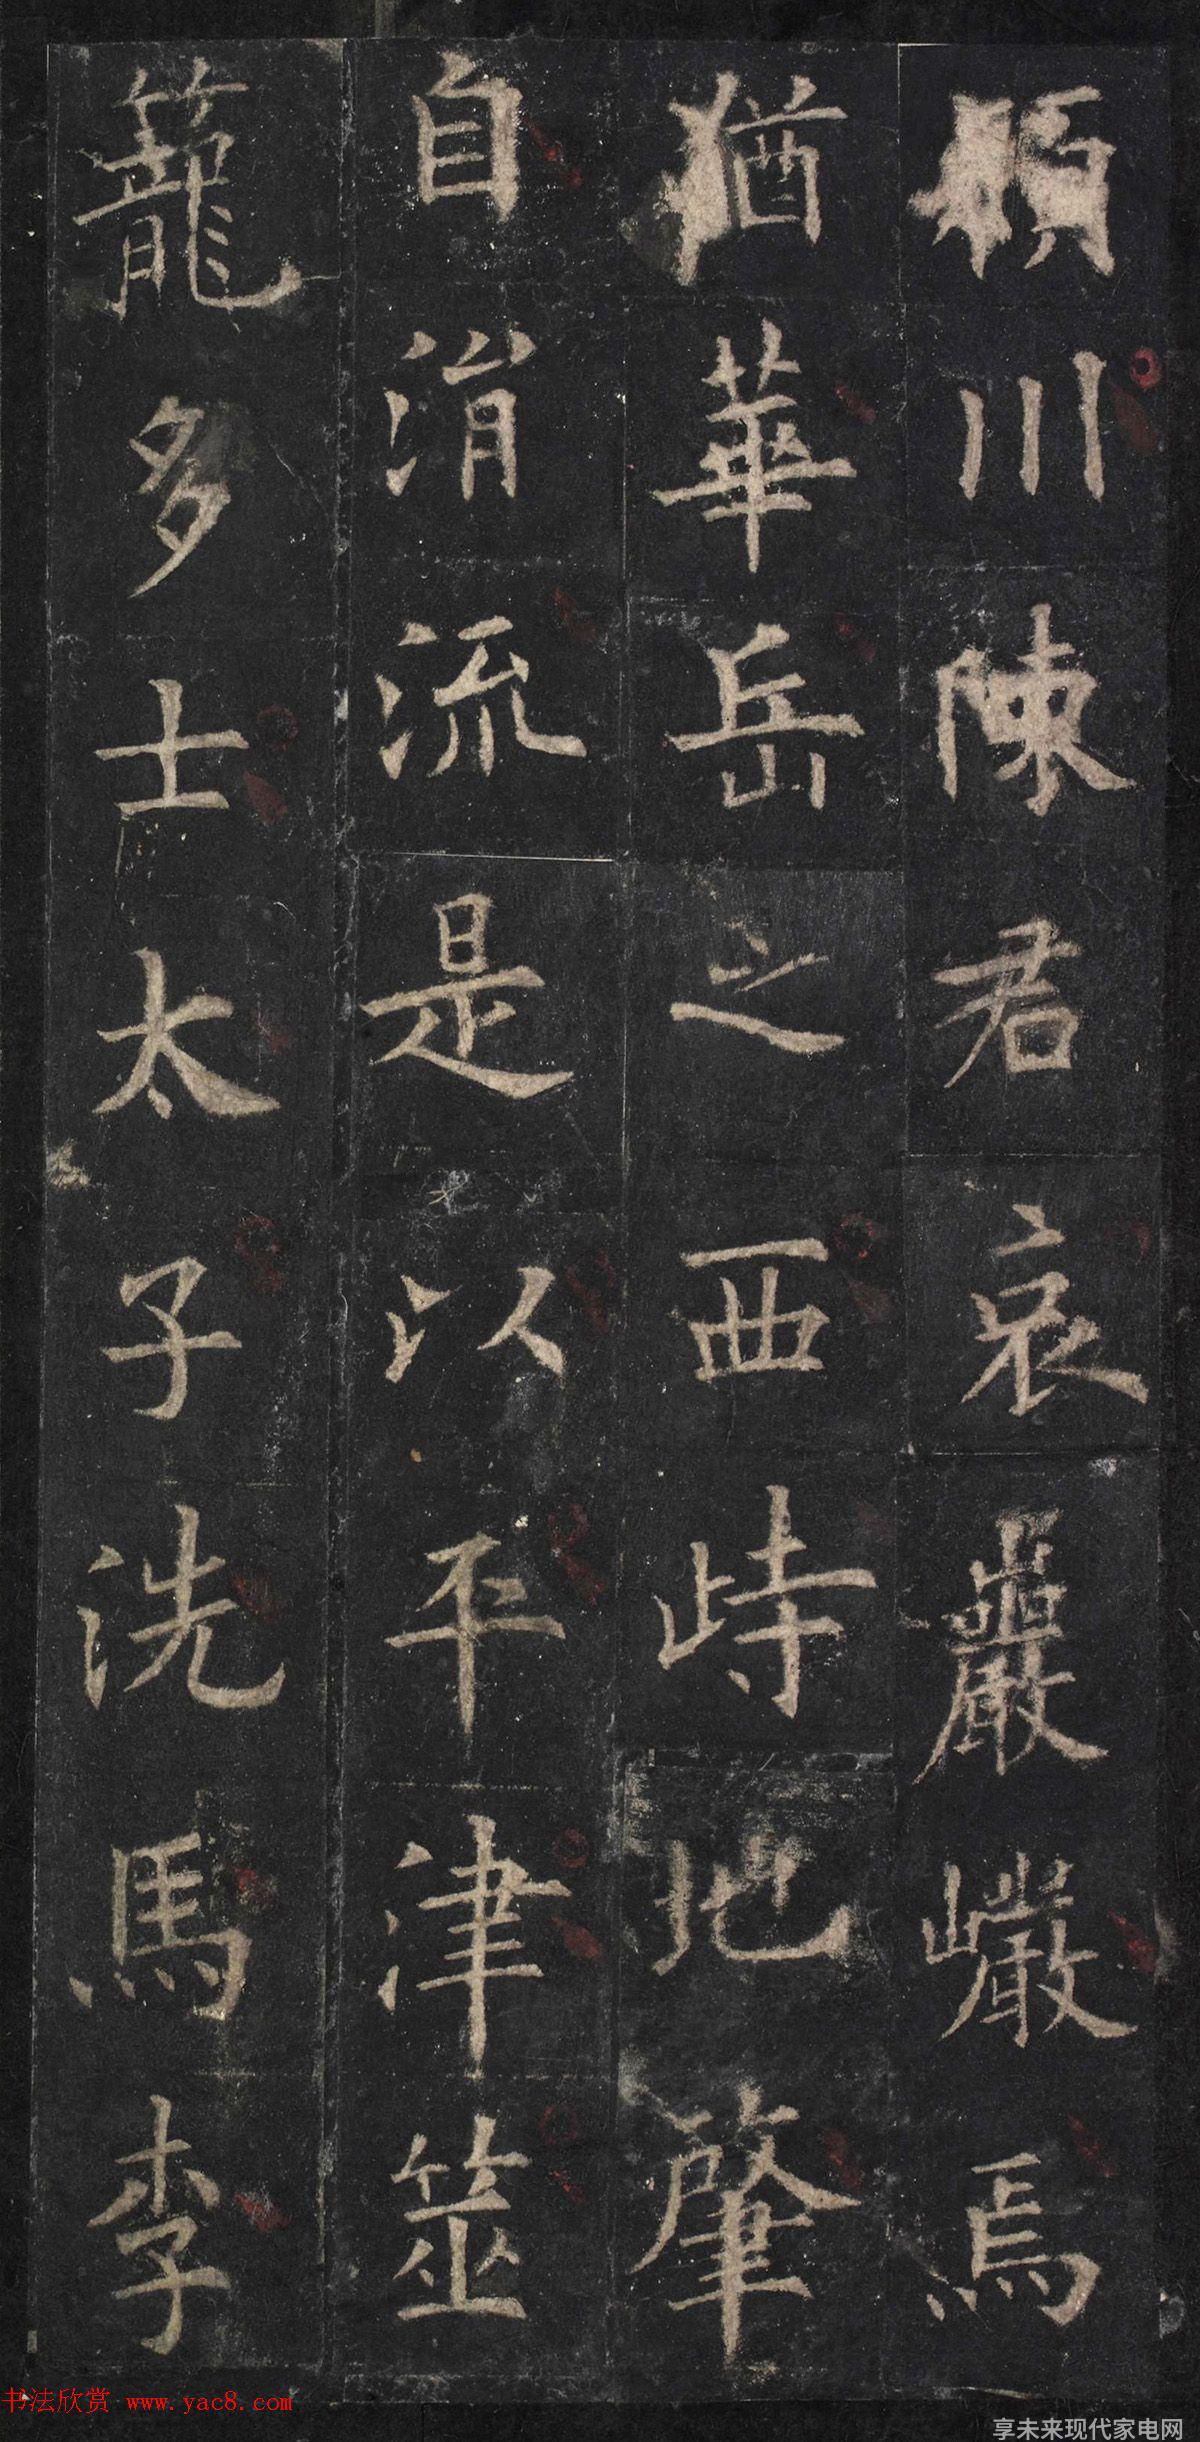 潁川陳君哀巖巖焉
猶華岳之西峙地肇
自涓流是以平津筮
龍多士太子洗馬李
书法欣赏 www.yac8.com
享未来现代家电网